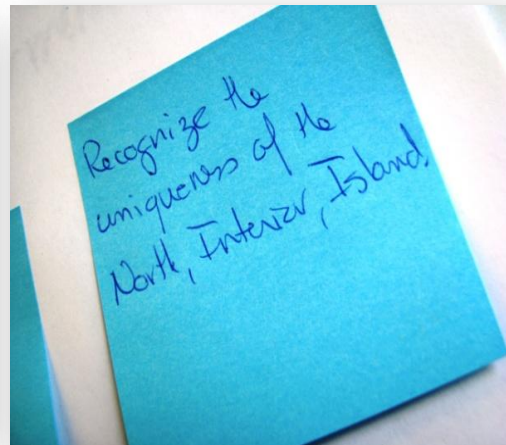 Recognize the
uniqueness of the
North, Interior, Island